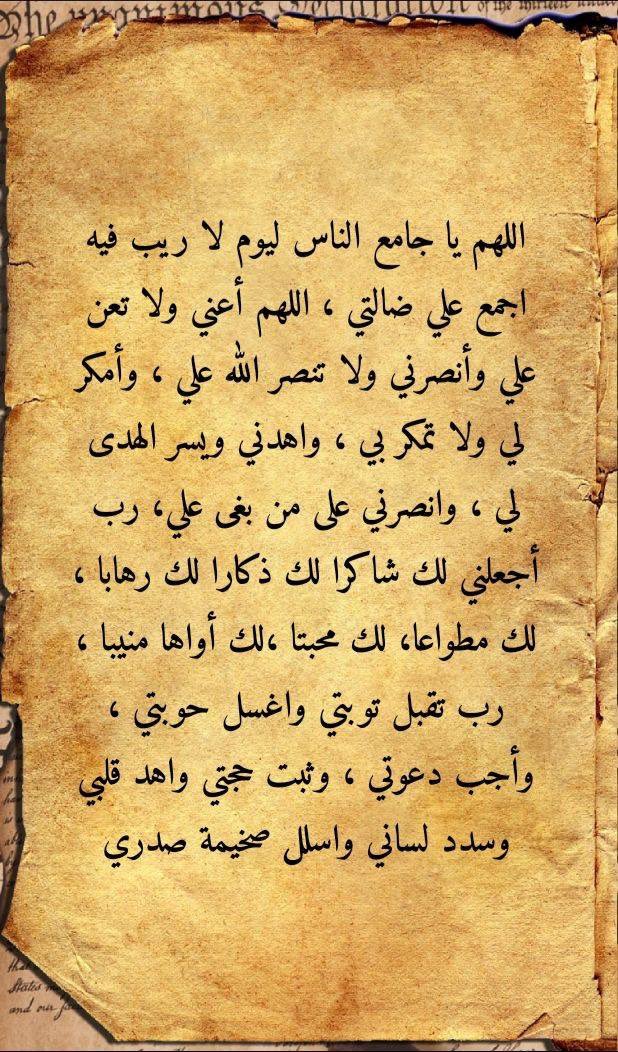 The unanimous Declaration of the thirteen united
اللهم يا جامع الناس ليوم لا ريب فيه
اجمع علي ضالتي ، اللهم أعني ولا تعن
علي وأنصرني ولا تنصر الله علي ، وأمكر
لي ولا تمكر بي ، واهدني ويسر الهدى
لي ، وانصرني على من بغى علي، رب
أجعلني لك شاكرا لك ذكارا لك رهابا ،
لك مطواعا، لك محبتا ،لك أواها منيبا ،
رب تقبل توبتي واغسل حوبتي ،
وأجب دعوتي ، وثبت حجتي واهد قلبي
وسدد لساني واسلل صخيمة صدري
that
States
and our